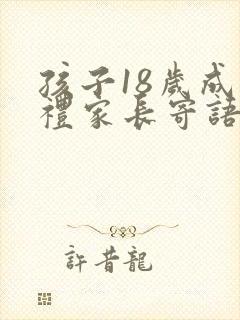 孩子18歲成
禮家長寄語
許昔龍